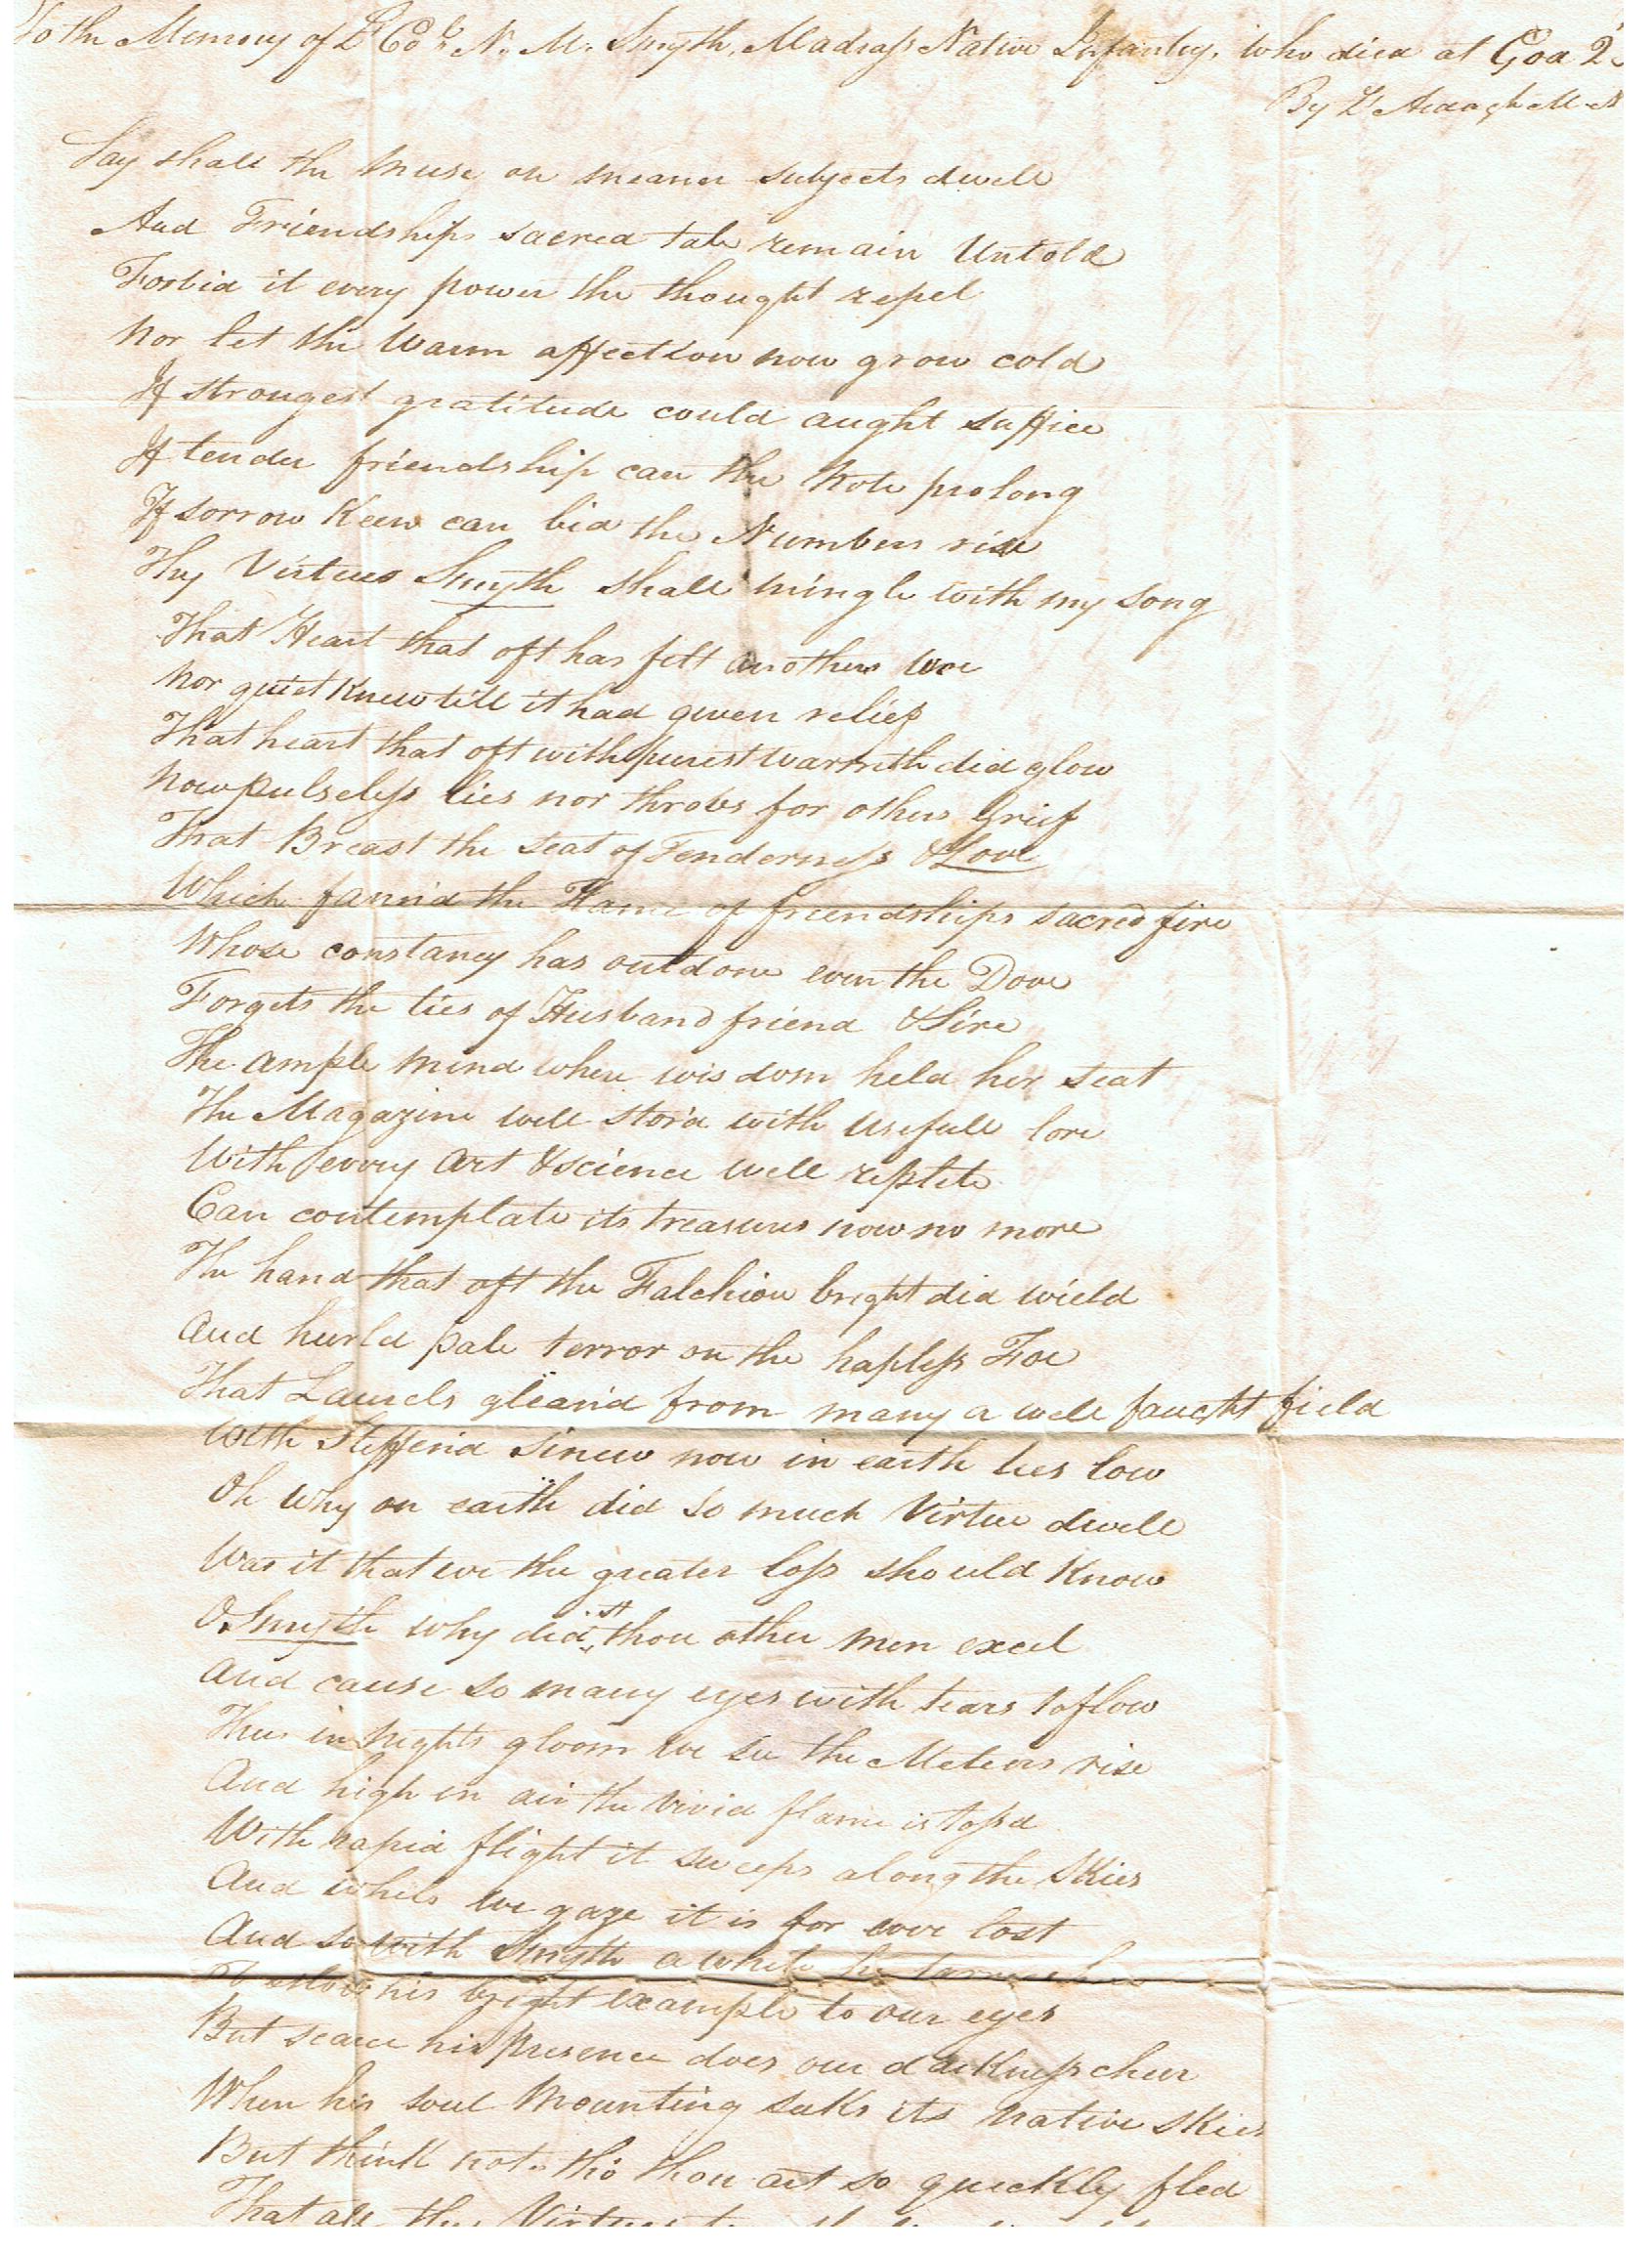 To the Memory of Lt Col. N. M. Smyth, Madrass Native Infantry, who died at Goa 2
By Lt Ardagh M. N
Say shall the Muse on meaner subjects dwell
And Friendships sacred tale remain Untold
Forbid it every power the thought repel
Nor let the Warm affection now grow cold
If strongest gratitude could aught suffice
If tender friendship can the Note prolong
If sorrow Keen can bid the Numbers rise
Thy Virtues Smyth shall mingle with my song
That Heart that oft has felt anothers Woe
Nor quiet Knew till it had given relief
That heart that oft with purest warmth did glow
Now pulseless lies nor throbs for others Grief
That Breast the seat of Tenderness & Love
Which fann'd the Flame of friendships sacred fire
Whose constancy has outdone even the Dove
Forgets the ties of Husband friend & Sire
The ample Mind where wisdom held her seat
The Magazine well stor'd with usefull lore
With every Art & science well replete
Can contemplate its treasures now no more
The hand that oft the Falchion bright did wield
And hurld pale terror on the hapless Foe
That Laurels glean'd from many a well faught field
With Stiffen'd sinew now in earth lies low
Oh Why on earth did so much Virtue dwell
Was it that we the greater loss should Know
O Smyth why didst thou other men excel
And cause so many eyes with tears to flow
Thus in Nights gloom we see the Meteors rise
And high in air the vivid flame is tossd
With rapid flight it sweeps along the Skies
And while we gaze it is for ever lost
And so with Smyth a while he
his bright example to our eyes
But scarce his presence does our darkness cheer
When his soul Mounting seeks its native skies
But think not tho' thou art so quickly fled
That all thy Virtues